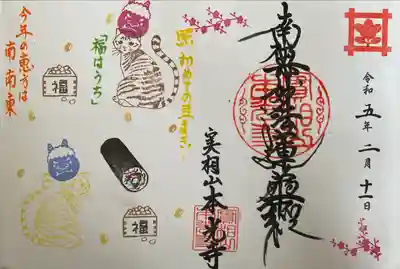 令和五年二月十一日
南無妙法蓮華経
実相山本光寺
祝 初めての豆まき!
「福はうち」
今年の恵方は
南南東
福
福